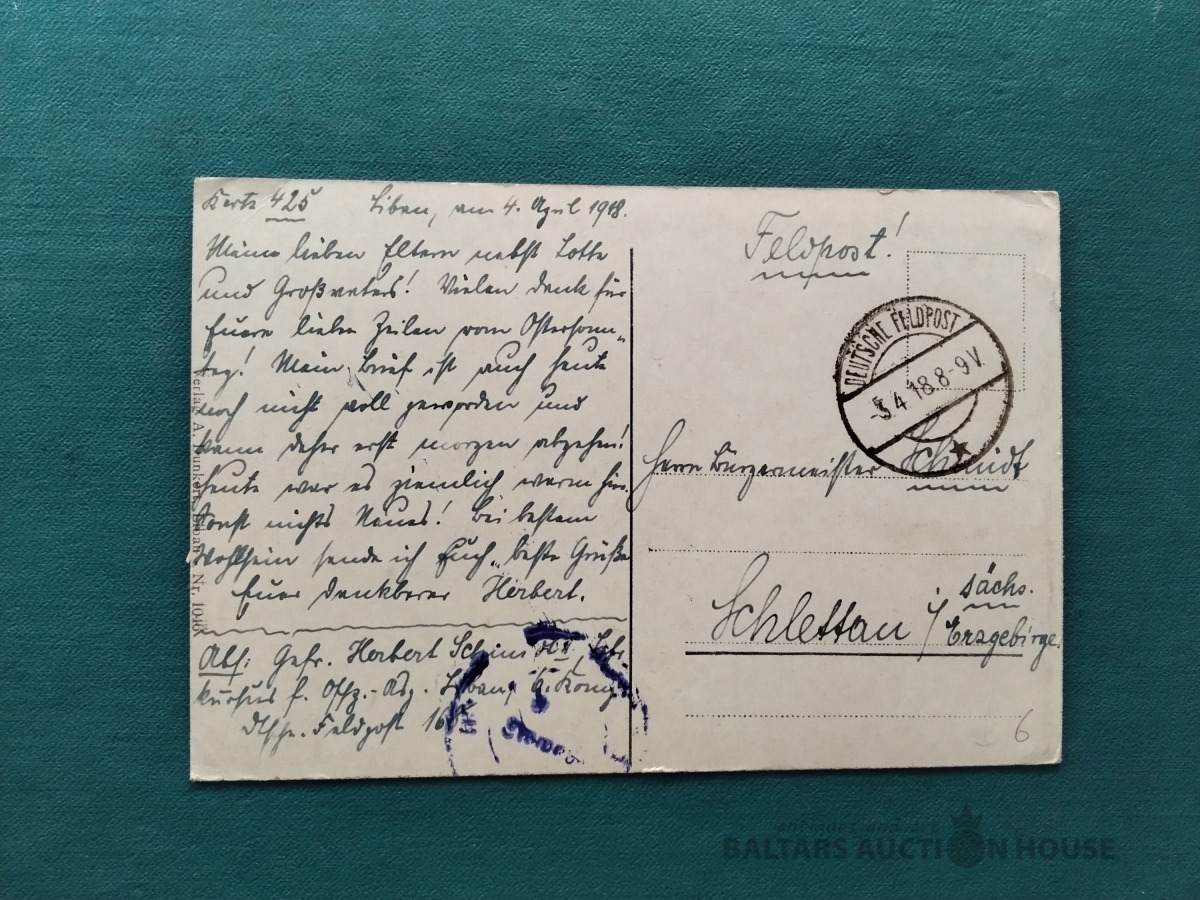 Karte 425 Libau, am 4. April 1918.
Meine lieben Eltern nebst Lotte
und Großvaters! Vielen Dank für
Euere lieben Zeilen vom Ostersonn„
tag! Mein Brief ist auch heute
noch nicht voll geworden und
kann daher erst morgen abgehen!
Heute war es ziemlich warm hier.
Sonst nichts Neues! Bei bestem
Wohlsein sende ich Euch beste Grüße
Euer dankbarer Herbert.
Abs: Gefr. Herbert Schmidt
kursus f. Offz.-Asp. Libau, 6. Komp.
Dtsche. Feldpost
Verlag A. Punkert, Libau Nr. 1046
Feldpost!
DEUTSCHE FELDPOST
-5.4.18.8-9V.
Herrn Bürgermeister Schmidt
Schlettau i/ sächs.
Erzgebirge.
6
antiques and art
BALTARS AUCTION HOUSE